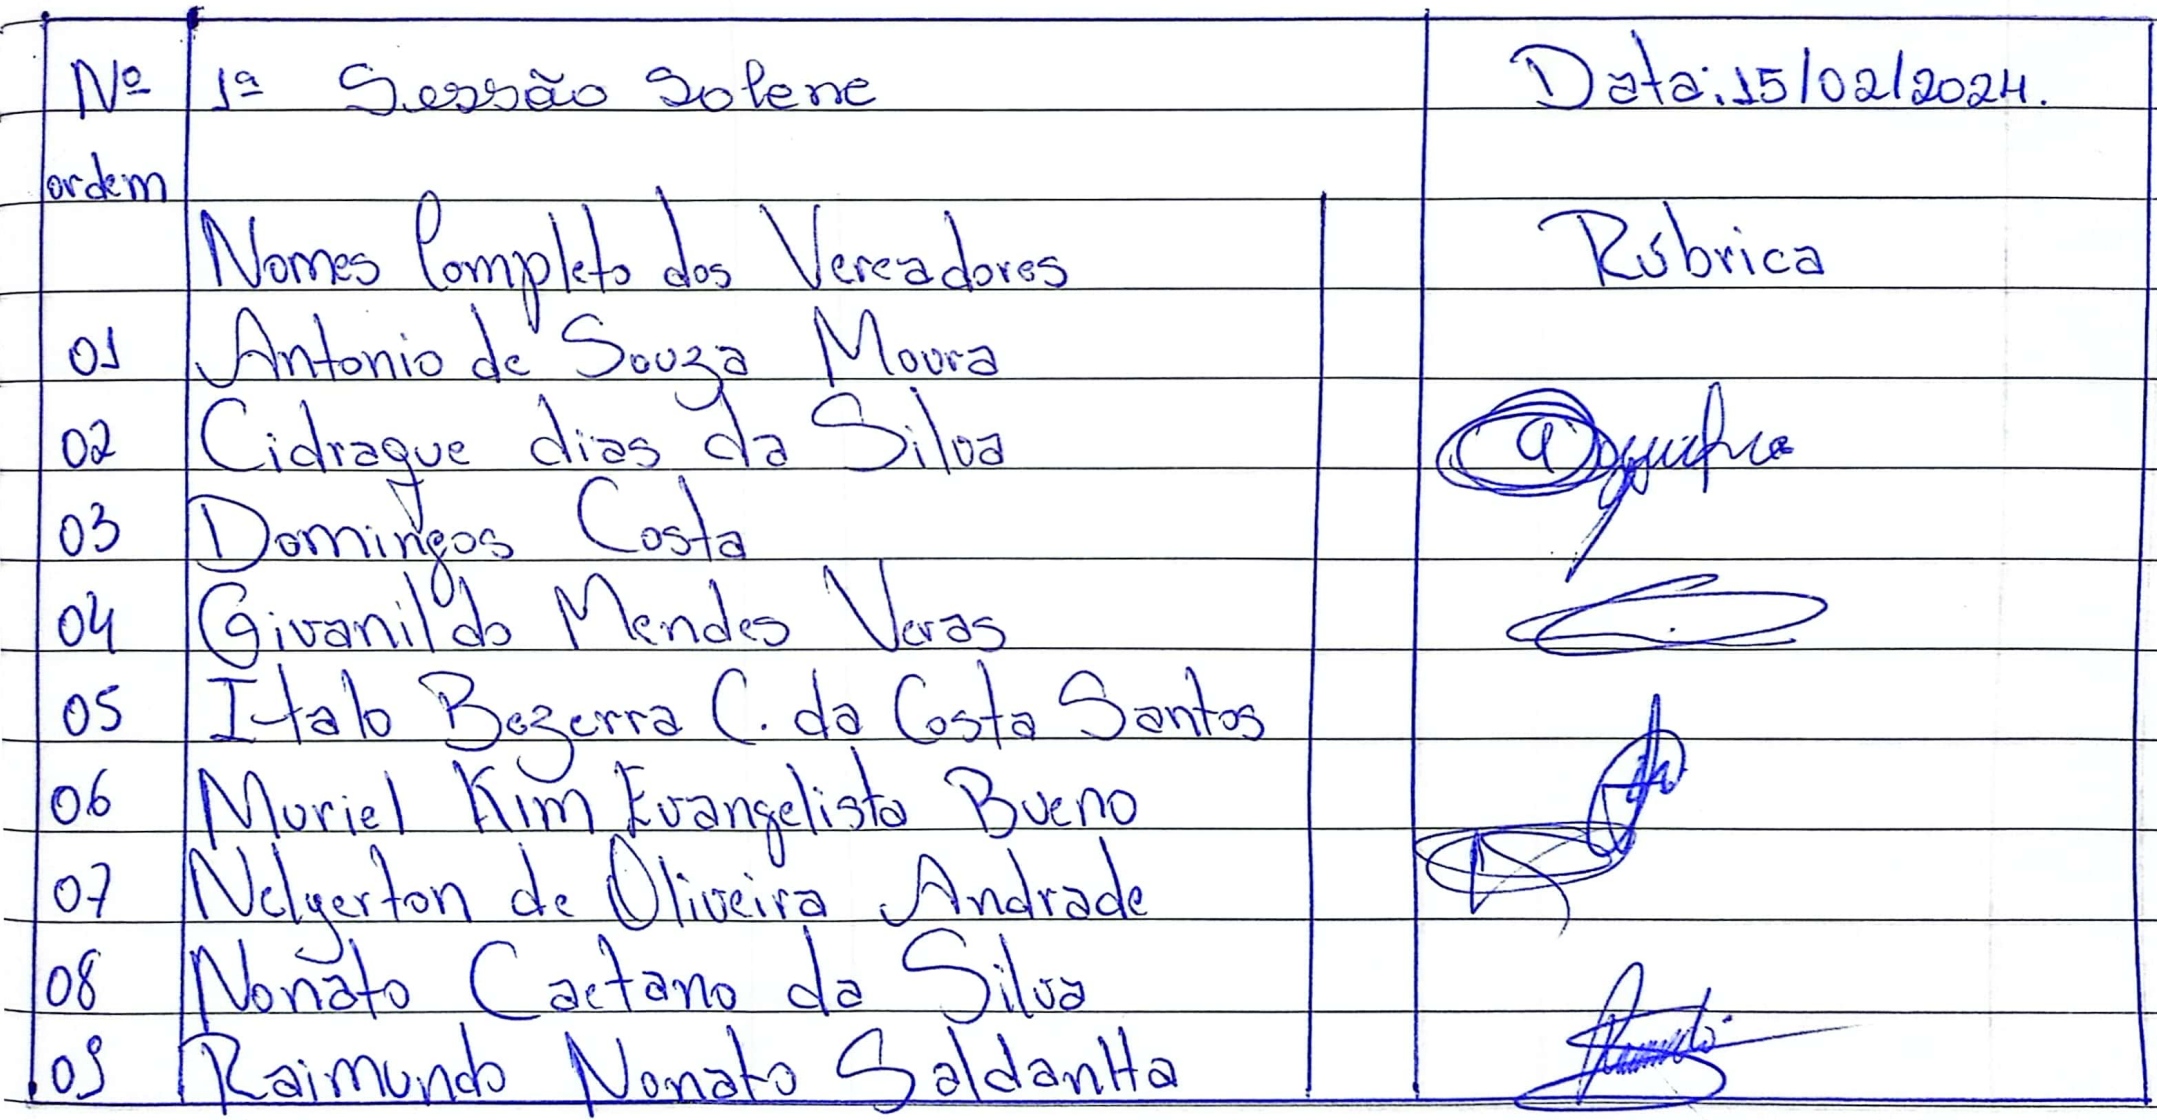 Nº 1ª Sessão Solene Data: 15/02/2024.
ordem
Nomes Completo dos Vereadores Rúbrica
01 Antonio de Souza Moura
02 Cidraque dias da Silva
03 Domingos Costa
04 Givanildo Mendes Veras
05 Italo Bezerra C. da Costa Santos
06 Muriel Kim Evangelista Bueno
07 Nelgerton de Oliveira Andrade
08 Nonato Caetano da Silva
09 Raimundo Nonato SaldanHa